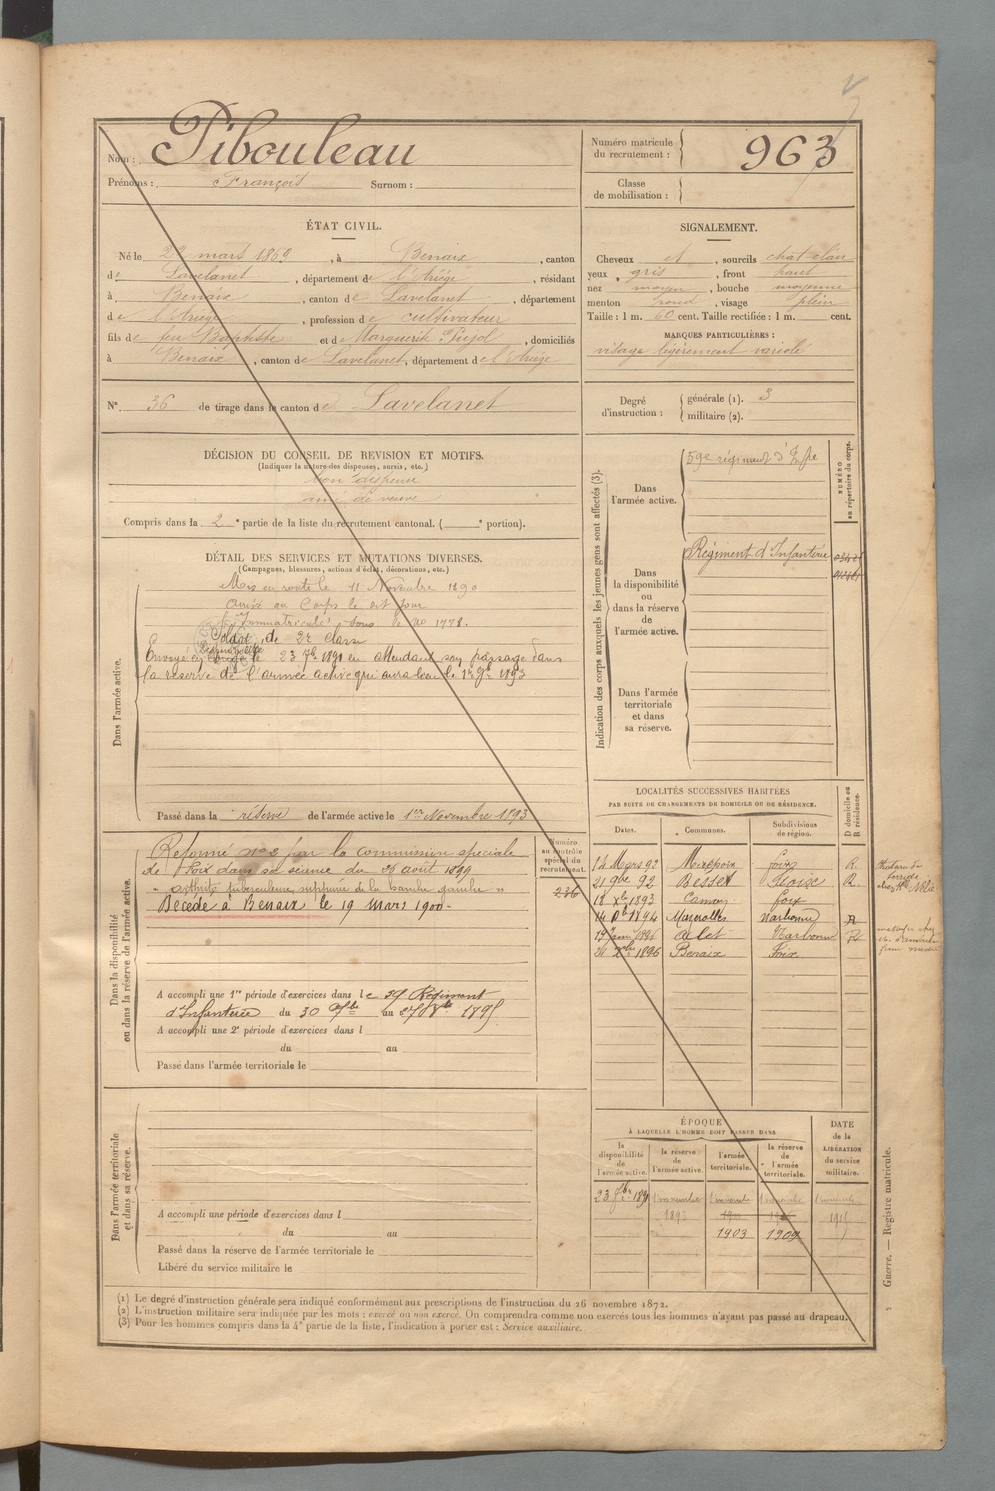 Nom : Pibouleau
Prénoms : François Surnom :
Numéro matricule du recrutement : 963
Classe de mobilisation :
ÉTAT CIVIL.
Né le 22 mars 1869, à Benaix, canton
de Lavelanet, département de l'Ariège, résidant
à Benaix, canton de Lavelanet, département
de l'Ariège, profession de cultivateur
fils de feu Baptiste et de Marguerite Pujol, domiciliés
à Benaix, canton de Lavelanet, département de l'Ariège
N° 36 de tirage dans le canton de Lavelanet
SIGNALEMENT.
Cheveux et, sourcils chat clair
yeux gris, front haut
nez moyen, bouche moyenne
menton rond, visage plein
Taille : 1 m. 60 cent. Taille rectifiée : 1 m. cent.
MARQUES PARTICULIÈRES :
visage légèrement variolé
Degré d'instruction : générale (1). 3
militaire (2).
DÉCISION DU CONSEIL DE REVISION ET MOTIFS.
(Indiquer la nature des dispenses, sursis, etc.)
bon dispensé
ainé de veuve
Compris dans la 2e partie de la liste du recrutement cantonal. ( e portion).
DÉTAIL DES SERVICES ET MUTATIONS DIVERSES.
(Campagnes, blessures, actions d'éclat, décorations, etc.)
Dans l'armée active.
Mis en route le 11 Novembre 1890
arrivé au Corps le dit jour
Immatriculé sous le no 1778.
Soldat de 2e classe
Envoyé en le 23 7bre 1891 en attendant son passage dans
la réserve de l'armée active qui aura lieu le 1er 9bre 1893
Passé dans la réserve de l'armée active le 1er Novembre 1893
Indication des corps auxquels les jeunes gens sont affectés (3).
NUMÉRO au répertoire du corps.
Dans l'armée active.
59e régiment d'Infie
Dans la disponibilité ou dans la réserve de l'armée active.
Régiment d'Infanterie
Dans l'armée territoriale et dans sa réserve.
LOCALITÉS SUCCESSIVES HABITÉES
PAR SUITE DE CHANGEMENTS DE DOMICILE OU DE RÉSIDENCE.
Dates. Communes. Subdivisions de région. D domicile ou R résidence.
14 Mars 92 Mirepoix Foix R.
21 9bre 92 Besset Foix R.
18 Xbre 1893 Camon Foix
14 1894 Marcolles Narbonne R
1896 Alet Narbonne R
31 Xbre 1896 Benaix Foix
Dans la disponibilité ou dans la réserve de l'armée active.
Numéro au contrôle spécial du recrutement.
236
Réformé no 2 par la commission spéciale
de Foix dans sa séance du 25 août 1899
" arthrite tuberculeuse suppurée de la jambe gauche "
Décédé à Benaix le 19 Mars 1900-
A accompli une 1re période d'exercices dans le 59 Régiment
d'Infanterie du 30 7bre au 27 8bre 1895
A accompli une 2e période d'exercices dans l
du au
Passé dans l'armée territoriale le
Dans l'armée territoriale et dans sa réserve.
A accompli une période d'exercices dans l
du au
Passé dans la réserve de l'armée territoriale le
Libéré du service militaire le
ÉPOQUE
À LAQUELLE L'HOMME DOIT PASSER DANS
la disponibilité de l'armée active. la réserve de l'armée active. l'armée territoriale. la réserve de l'armée territoriale.
DATE de la LIBÉRATION du service militaire.
23 7bre 1891 1 novembre 1893 1 novembre 1903 1 novembre 1909 1 novembre 1915
Guerre. — Registre matricule.
(1) Le degré d'instruction générale sera indiqué conformément aux prescriptions de l'instruction du 26 novembre 1872.
(2) L'instruction militaire sera indiquée par les mots : exercé ou non exercé. On comprendra comme non exercés tous les hommes n'ayant pas passé au drapeau.
(3) Pour les hommes compris dans la 4e partie de la liste, l'indication à porter est : Service auxiliaire.